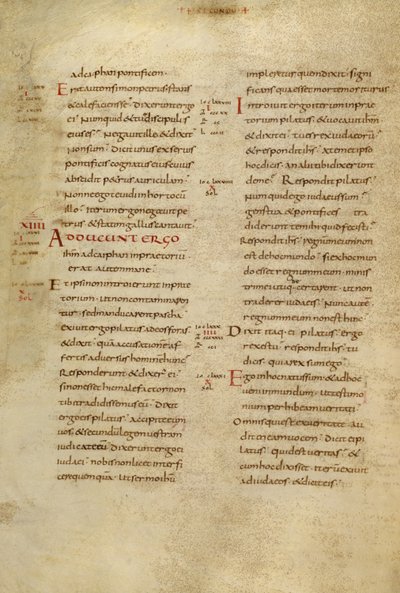 SECUNDU
ad caiphan pontificem
Erat autem simon petrus stans
& calefaciens se Dixerunt ergo
ei Numquid & tu ex discipulis
eius es Negauit ille & dixit
Non sum Dicit unus ex seruis
pontificis cognatus eius cuius
abscidit petrus auriculam
Nonne ego te uidi in horto cum
illo Iterum ergo negauit pe
trus & statim gallus cantauit
XIIII
ADDUCUNT ERGO
ihm ad caiphan in praetoriu
erat autem mane
Et ipsi non introierunt in prae
torium ut non contaminaren
tur sed manducarent pascha
exiuit ergo pilatus ad eos foras
& dixit quam accusationem af
fertis aduersus hominem hunc
Responderunt & dixer ei
si non esset hic malefactor non
tibi tradidissemus eum Dixit
ergo eis pilatus accipite eum
uos & secundum legem uestram
iudicate eum Dixerunt ergo ei
iudaei nobis non licet interfi
cere quemquam Ut sermo ihu
impleretur quem dixit signi
ficans qua esset morte moriturus
Introiuit ergo iterum in prae
torium pilatus & uocauit ihm
& dixit ei tu es rex iudaeoru
& respondit ihs A temetipso
hoc dicis an alii tibi dixerunt
de me Respondit pilatus
Numquid ego iudaeus sum
gens tua & pontifices tra
diderunt te mihi quid fecisti
Respondit ihs regnum meu non
est de hoc mundo si ex hoc mun
do esset regnum meum minis
tri mei utique certarent ut non
traderer iudaeis Nunc autem
regnum meum non est hinc
Dixit itaq: ei pilatus ergo
rex es tu respondit ihs tu
dicis quia rex sum ego
Ego in hoc natus sum & ad hoc
ueni in mundum ut testimo
nium perhibeam ueritati
Omnis qui est ex ueritate au
dit uocem meam Dicit ei pi
latus quid est ueritas &
cum hoc dixisset iterum exiuit
ad iudaeos & dicit eis